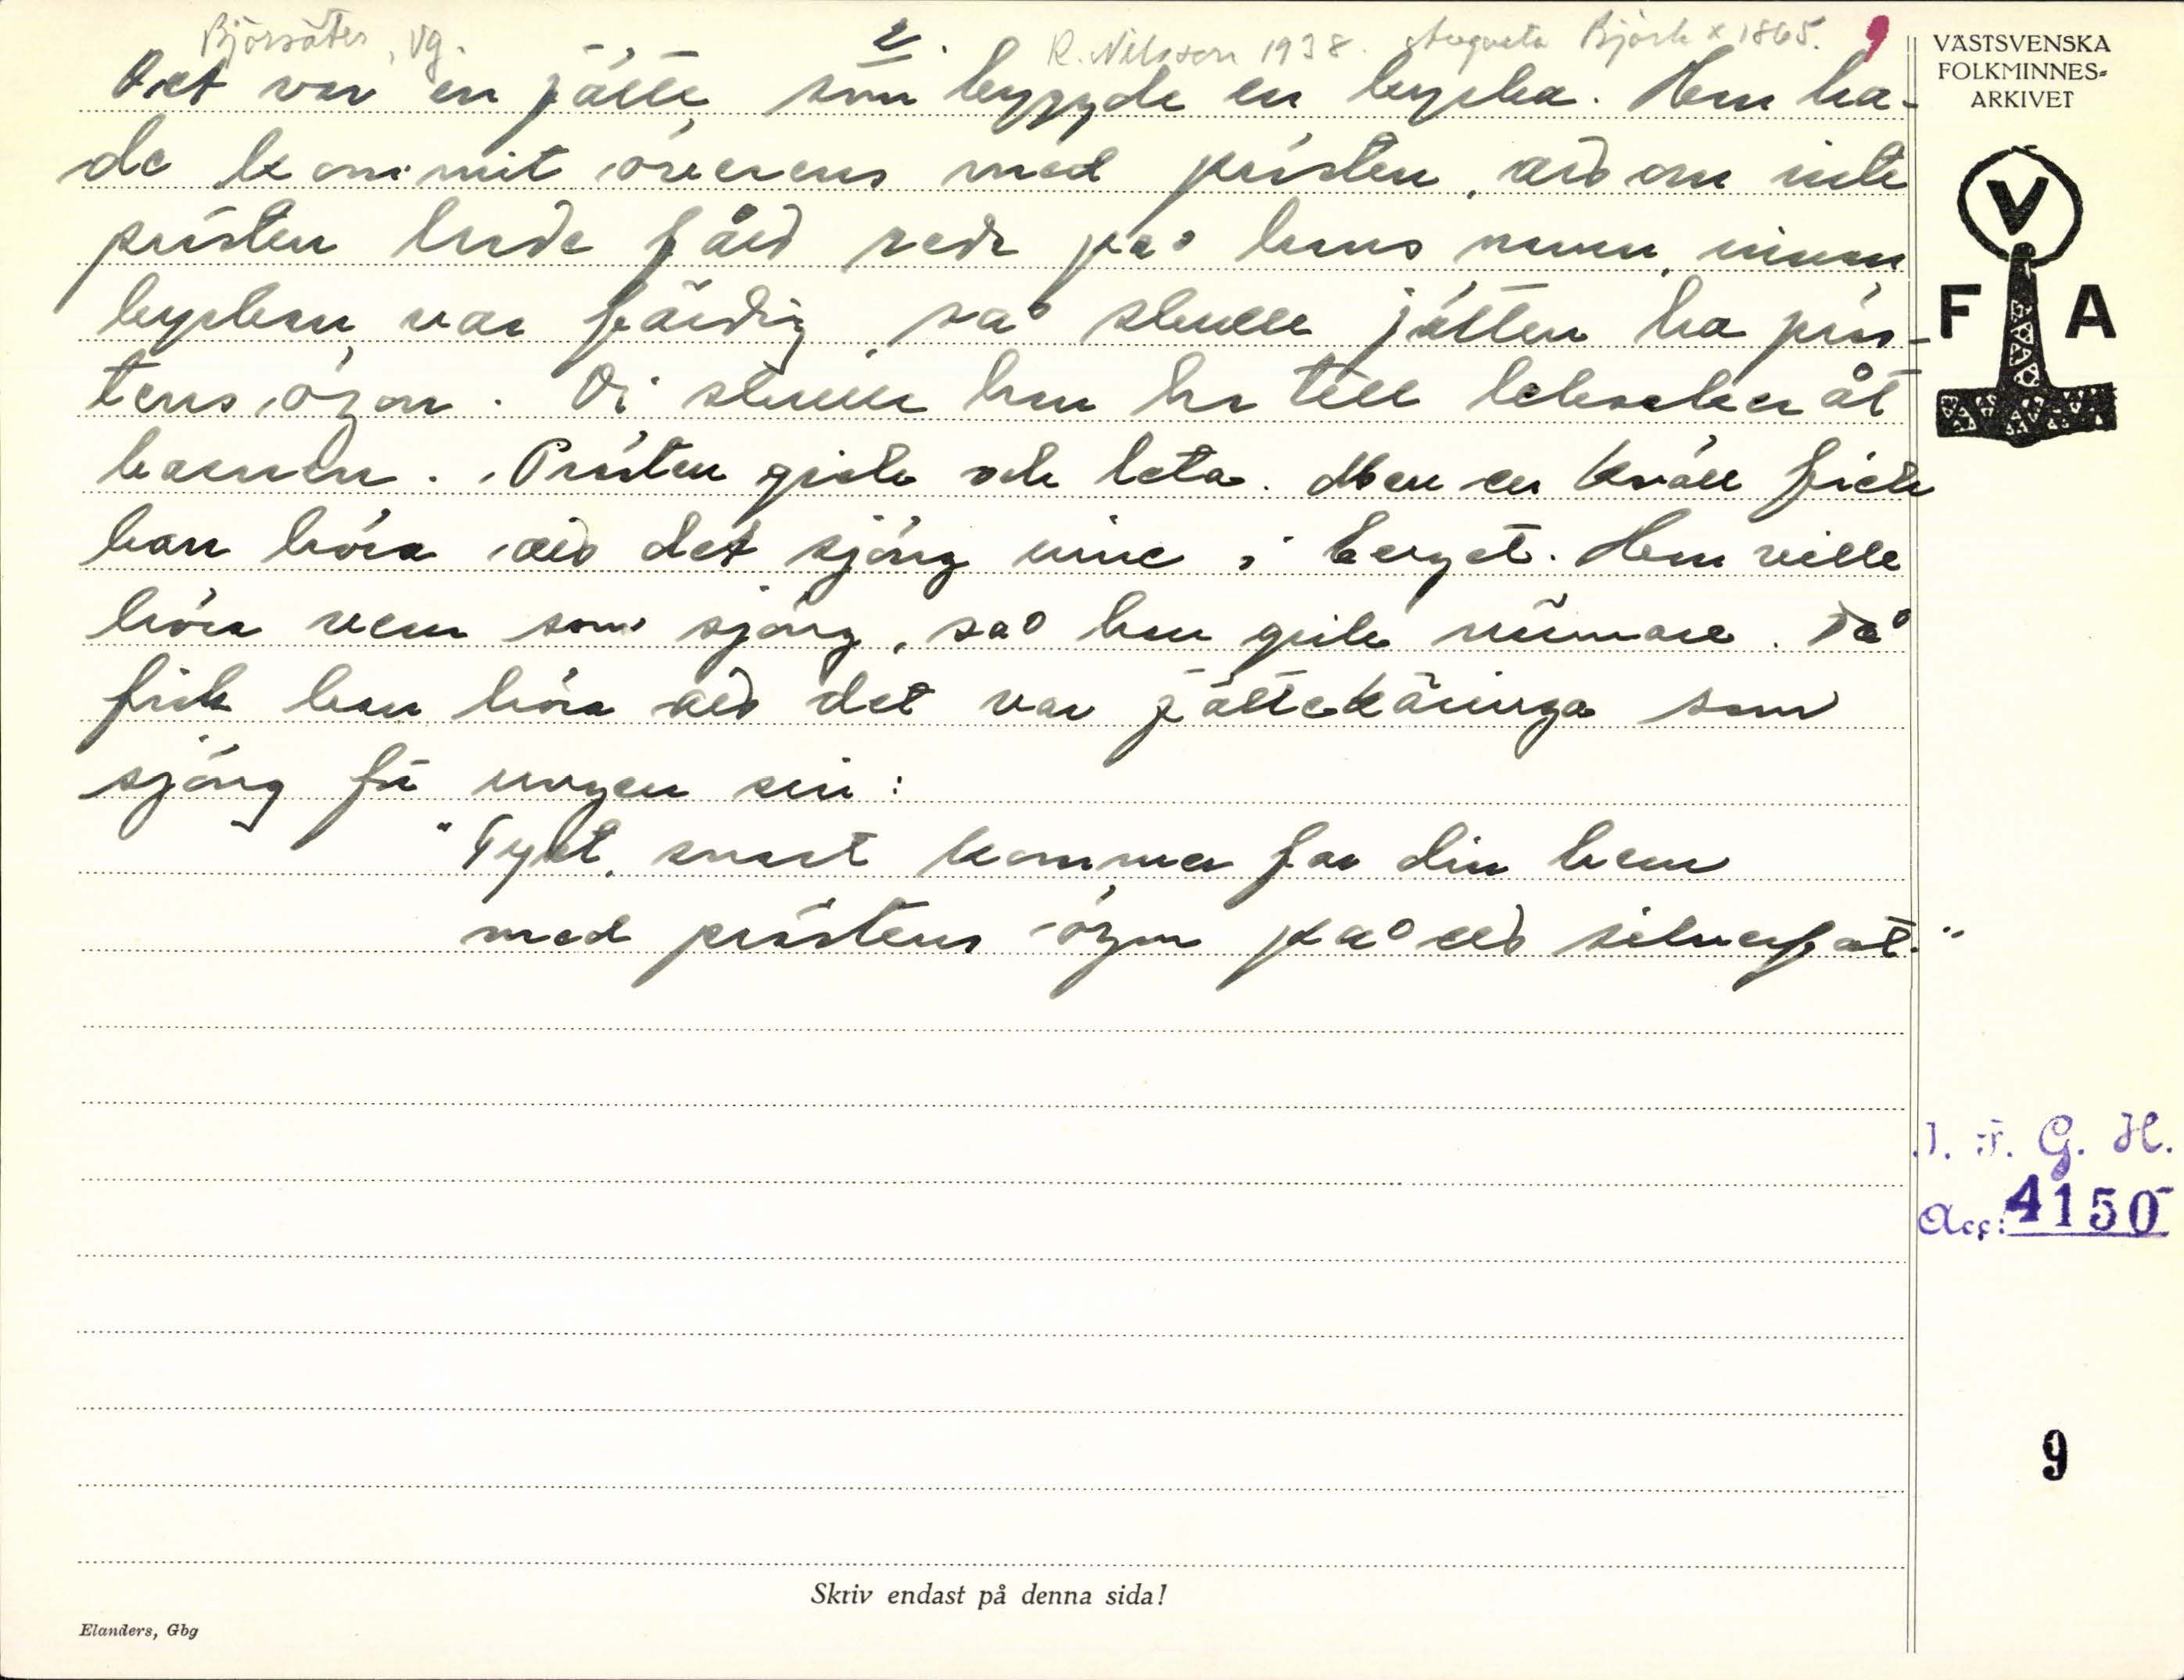 Björsäter, Vg. 2. R. Nilsson 1938. Augusta Björk x 1865. 9
Det var en jätte, som byggde en kyrka. Han ha-
de kommit överens med prästen, aid om inte
prästen hade fåid reda på hans namn, innan
kyrkan var färdig, så skulle jätten ha präs-
tens ögon. Di skulle han ha till leksaker åt
barnen. Prästen gick och leta. Men en kväll fick
han höra aid det sjöng inne i berget. Han ville
höra vem som sjöng, så han gick närmare. Då
fick han höra aid det var jättekäringa som
sjöng få ungen sin:
"Tyst, snart kommer far din hem
med prästens ögon på eid silverfat."
VÄSTSVENSKA
FOLKMINNES-
ARKIVET
V
F A
I. F. G. H.
Acc: 4150
9
Skriv endast på denna sida!
Elanders, Gbg